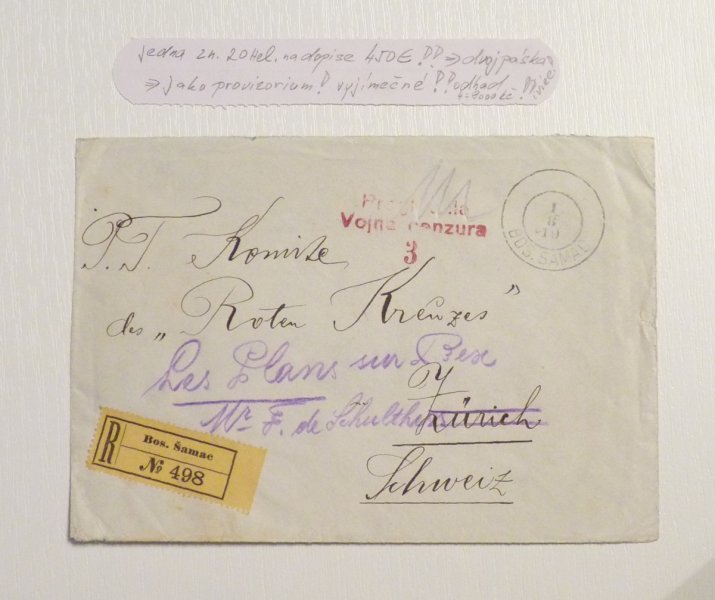 jedna zn. 20 Hel. na dopise 450 € !! => dvojpáska
=> jako provizorium! vyjímečné!! odhad
Vojna cenzura
3
1
8
19
BOS. ŠAMAC
P.T. Komite
des „Roten Kreuzes"
Les Plans sur Bex
Mr F. de Schulthess
Zürich
Schweiz
R
Bos. Šamac
№ 498